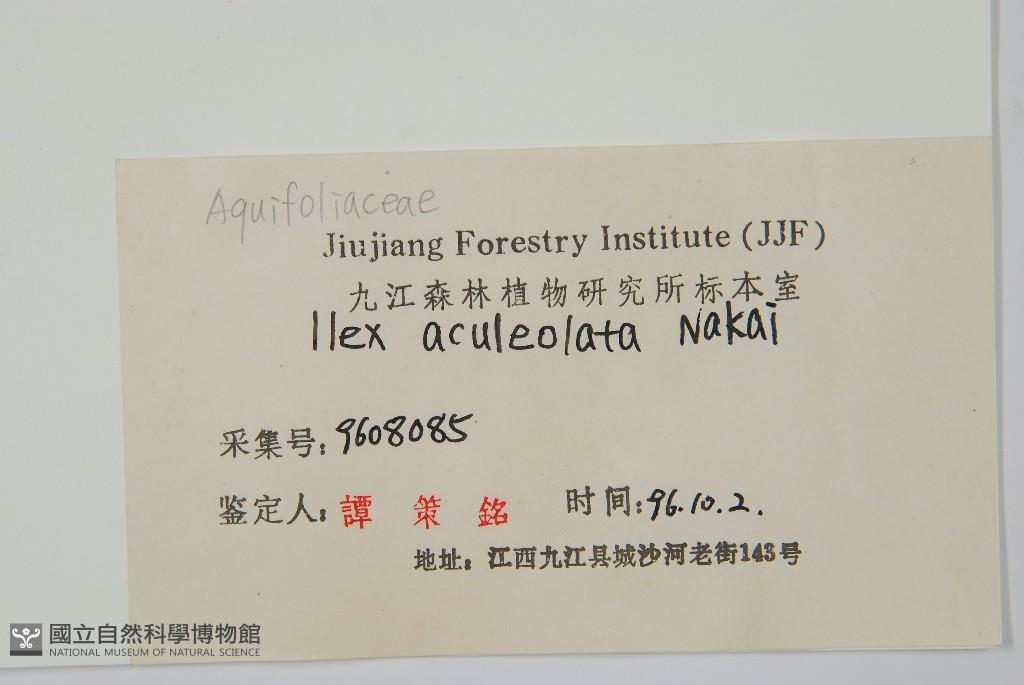 Aquifoliaceae
Jiujiang Forestry Institute (JJF)
九江森林植物研究所标本室
Ilex aculeolata Nakai
采集号: 9608085
鉴定人: 譚 策 銘 时间: 96.10.2.
地址: 江西九江县城沙河老街143号
國立自然科學博物館
NATIONAL MUSEUM OF NATURAL SCIENCE